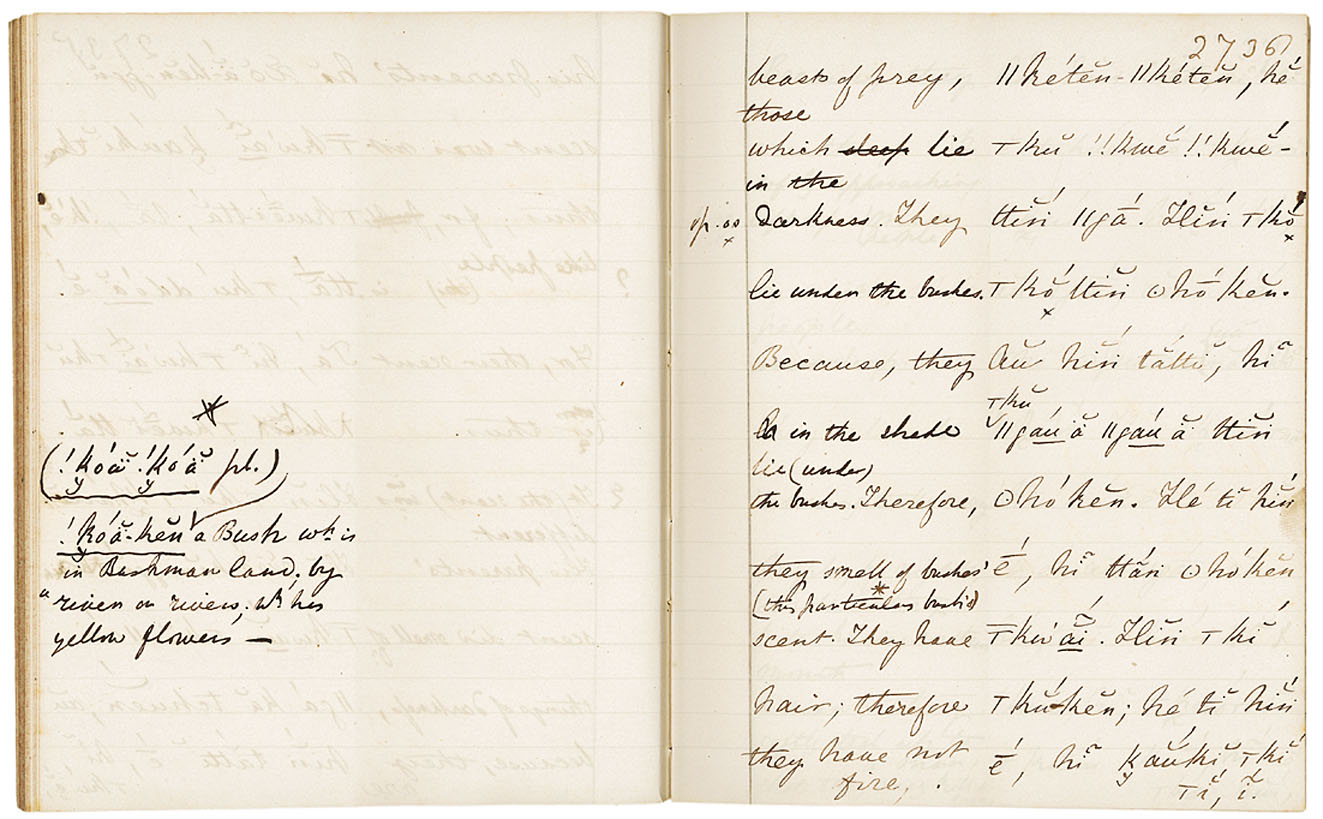 *
(!kóä !kóä pl.)
!kóä-kĕn a Bush wh. is
in Bushman land, by
"river or rivers; wh. has
yellow flowers —
2736
beasts of prey, ǁkétĕn-ǁkétĕn, hé
those
which sleep lie ⊤kŭ !!kwĕ́ !!kwĕ́-
in the
op. oo darkness. They ttĭŋ ǁgā. Hĭŋ ⊤kŏ́
x x
lie under the bushes. ⊤kŏ́ ttĭŋ ʘhókĕn.
x
Because, they Āŭ hĭŋ tā́ttĭ, hĭ
⊤kŭ
in the shade ǁgáúă ǁgáúă ttĭŋ
lie (under)
the bushes. Therefore, ʘhókĕn. Hé tĭ hĭŋ
they smell of bushes' é, hĭ ttáŋ ʘhókĕn
(this particular bush's) *
scent. They have ⊤kw'ãĭ. Hĭŋ ⊤kĭ
hair; therefore ⊤kŭ́kĕn; hé tĭ hĭŋ
they have not é, hĭ yăŭkĭ ⊤kĭ
fire, ⊤í, ĭ.